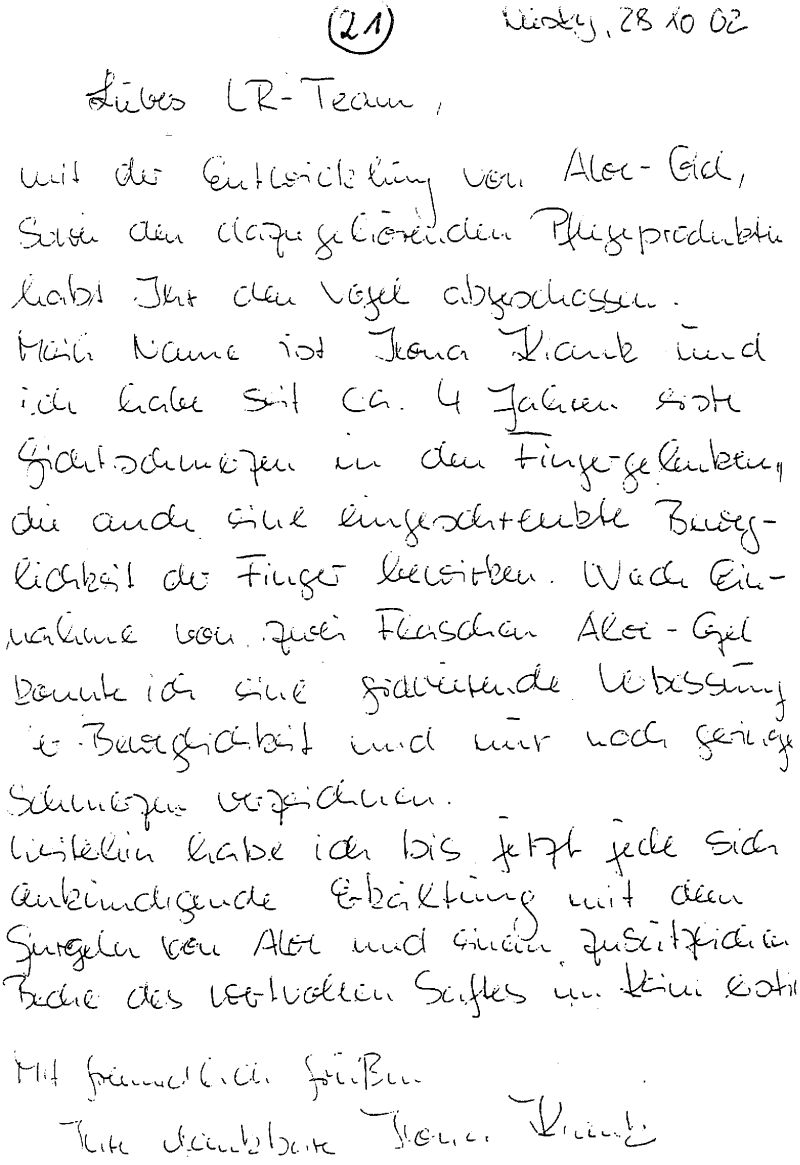 (21) Niesky, 28 10 02
Liebes LR-Team,
mit der Entwicklung von Aloe-Gel,
sowie den dazugehörenden Pflegeprodukten
habt Ihr den Vogel abgeschossen.
Mein Name ist Ilona und
ich habe seit ca. 4 Jahren erste
Gichtschmerzen in den Fingergelenken,
die auch eine eingeschrenkte Beweg-
lichkeit der Finger bewirken. Nach Ein-
nahme von zwei Flaschen Aloe-Gel
konnte ich eine gravierende Verbesserung
der Beweglichkeit und nur noch geringe
Schmerzen verzeichnen.
Weiterhin habe ich bis jetzt jede sich
ankündigende Erkältung mit dem
Gurgeln von Aloe und einem zusätzlichen
Becher des wertvollen Saftes im Keim erstickt
Mit freundlichen Grüßen
Ihre dankbare Ilona